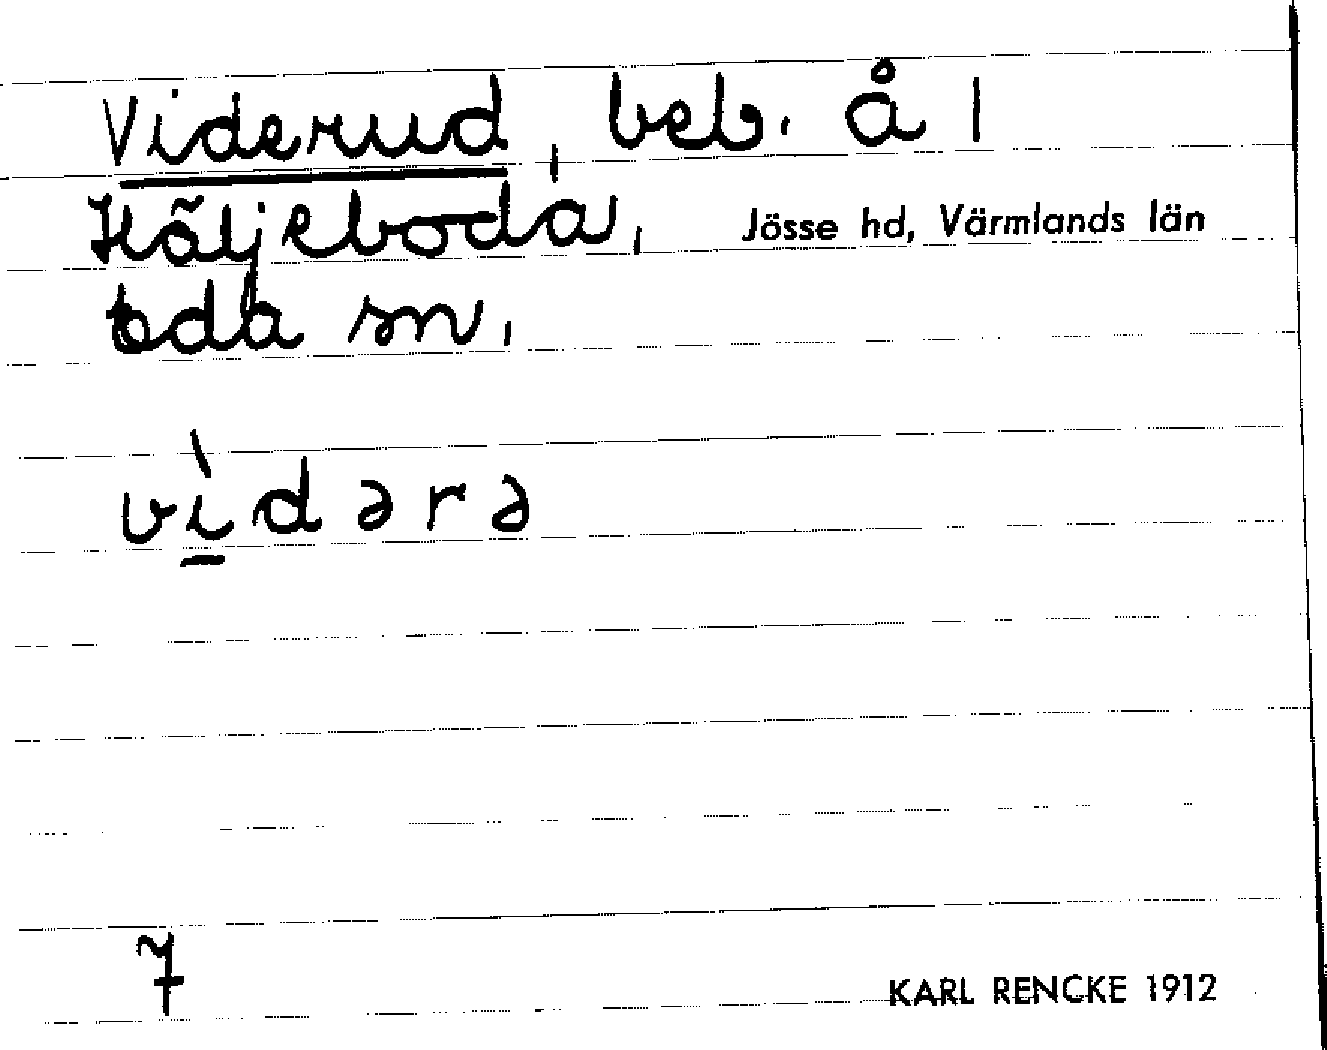 Viderud, beb. å 1
Häljeboda, Jösse hd, Värmlands län
eda sn.
vìdərə
7
KARL RENCKE 1912